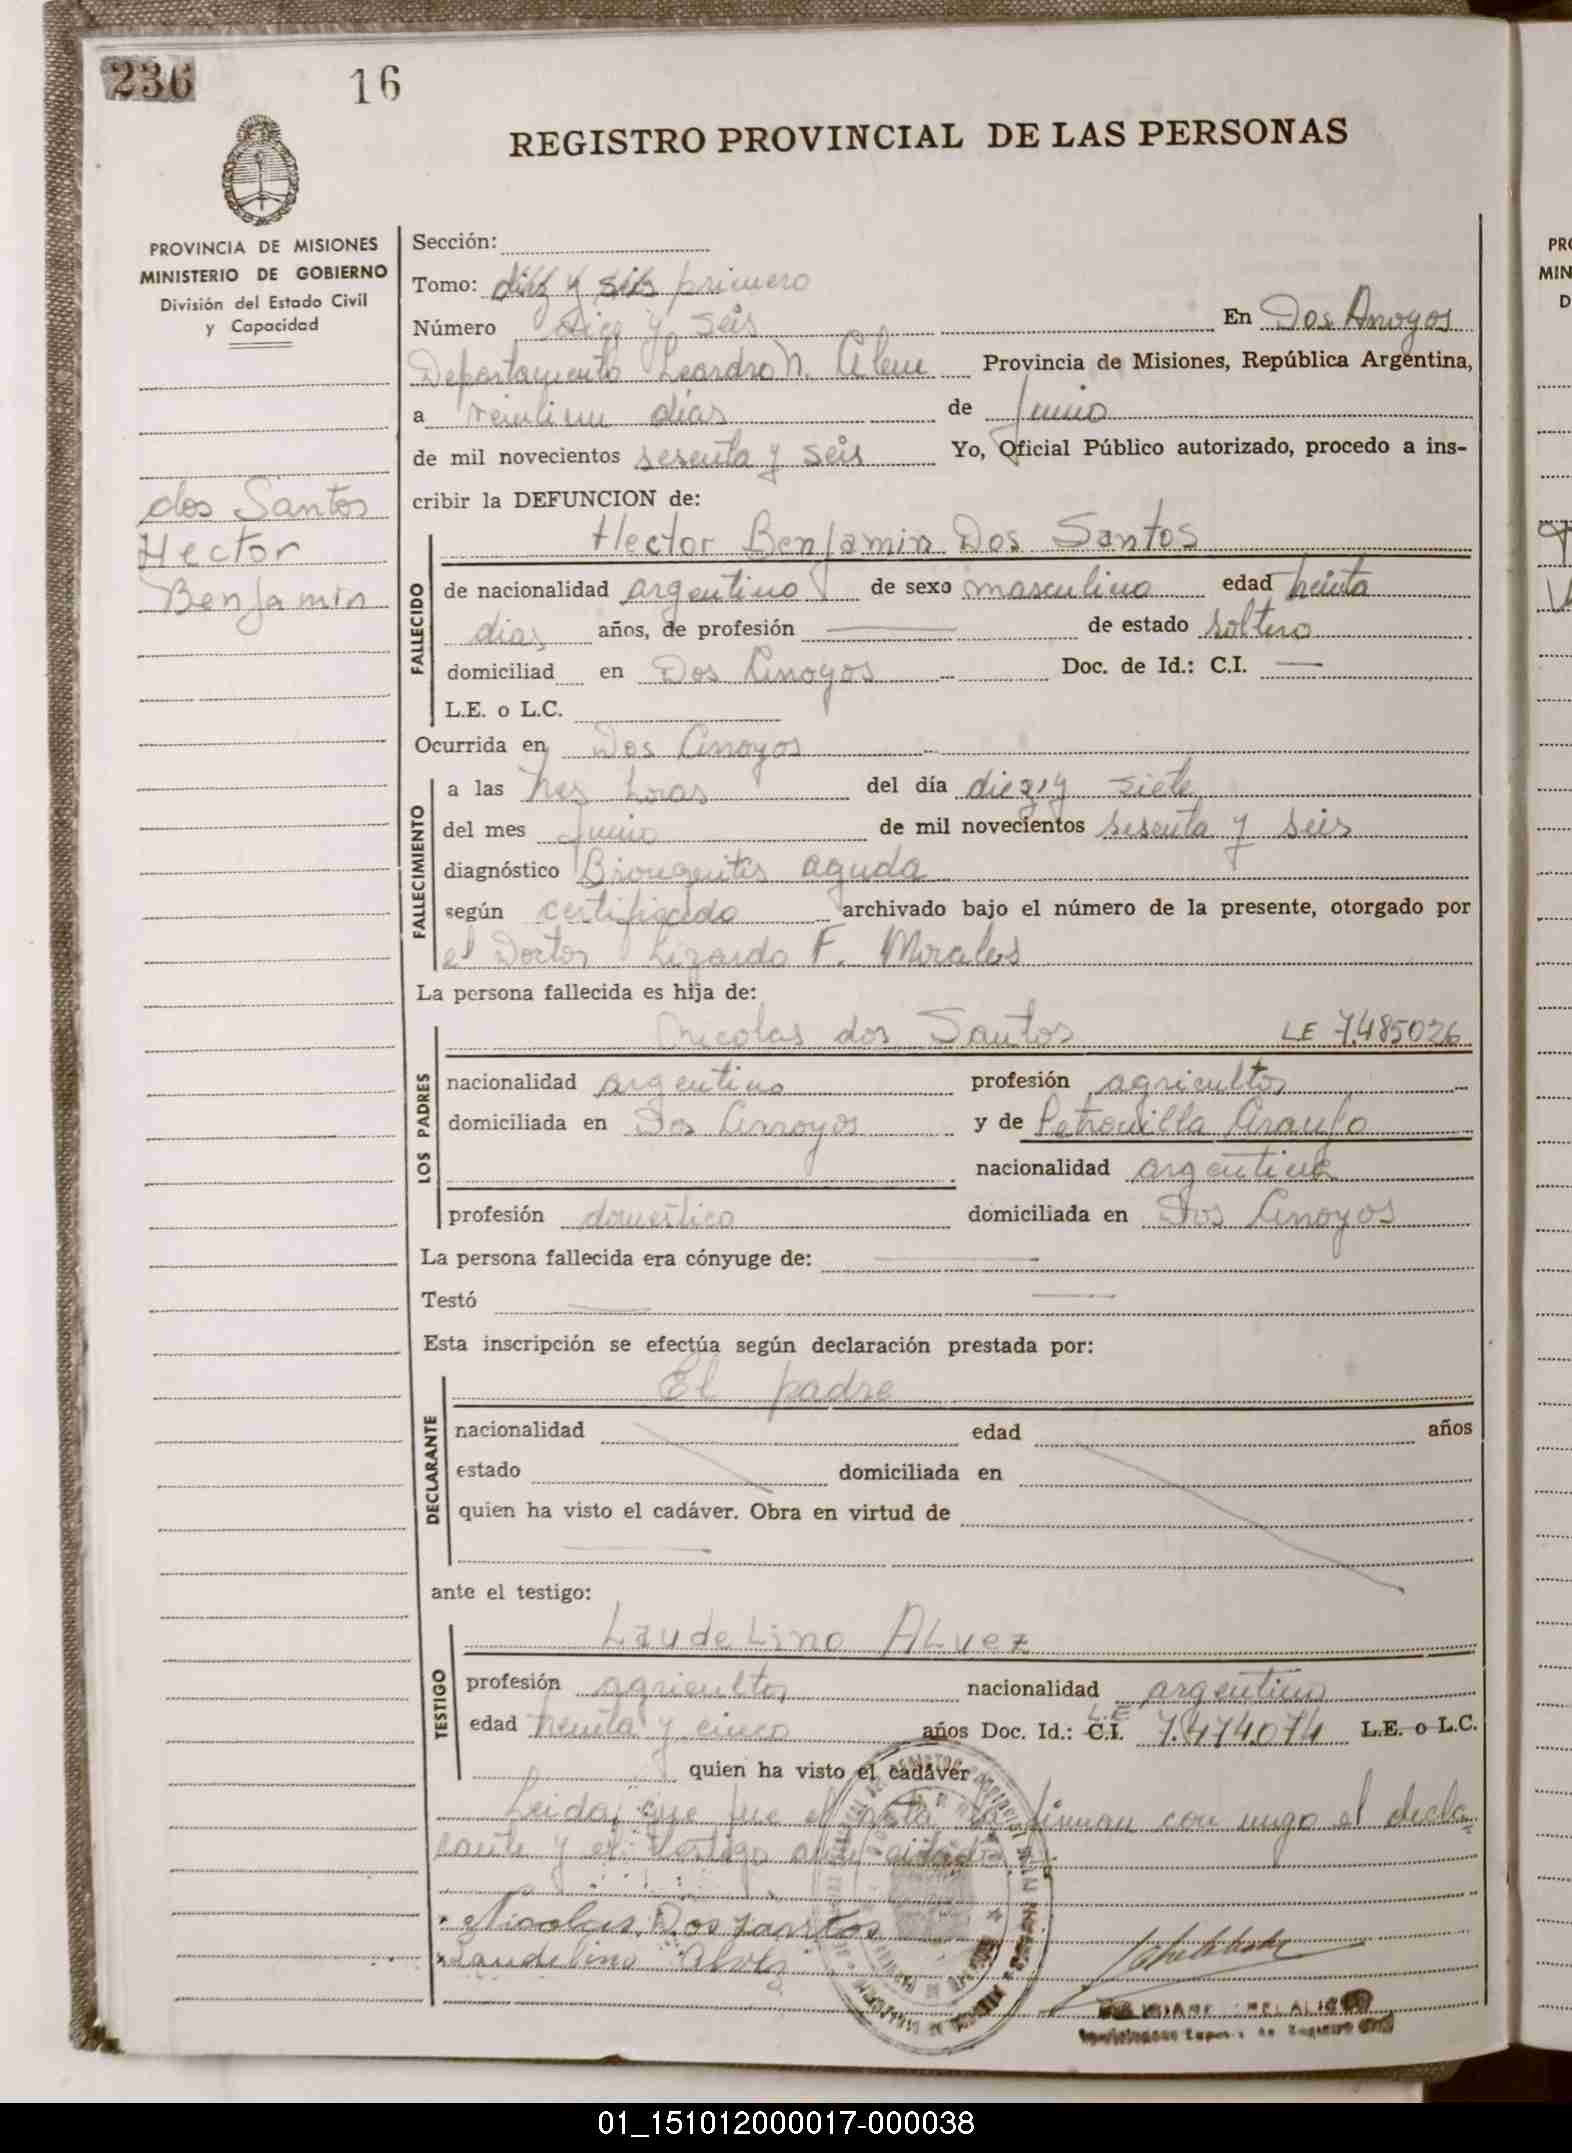 236 16
REGISTRO PROVINCIAL DE LAS PERSONAS
PROVINCIA DE MISIONES
MINISTERIO DE GOBIERNO
División del Estado Civil
y Capacidad
dos Santos
Hector
Benjamin
Sección:
Tomo: diez y seis primero
Número diez y seis En Dos Arroyos
Departamento Leandro N. Alem Provincia de Misiones, República Argentina,
a veintiun días de Junio
de mil novecientos sesenta y seis Yo, Oficial Público autorizado, procedo a ins-
cribir la DEFUNCION de:
Hector Benjamin Dos Santos
FALLECIDO
de nacionalidad argentino de sexo masculino edad treinta
dias años, de profesión — de estado soltero
domiciliad en Dos Arroyos Doc. de Id.: C.I. —
L.E. o L.C.
Ocurrida en Dos Arroyos
FALLECIMIENTO
a las tres horas del día diez y siete
del mes Junio de mil novecientos sesenta y seis
diagnóstico aguda
según certificado archivado bajo el número de la presente, otorgado por
el Doctor Lizardo F. Mirales
La persona fallecida es hija de:
LOS PADRES
Nicolas dos Santos LE 7.485026
nacionalidad argentino profesión agricultor
domiciliada en Dos Arroyos y de Petronilla Araujo
nacionalidad argentina
profesión domestica domiciliada en Dos Arroyos
La persona fallecida era cónyuge de: —
Testó — —
Esta inscripción se efectúa según declaración prestada por:
El padre
DECLARANTE
nacionalidad edad años
estado domiciliada en
quien ha visto el cadáver. Obra en virtud de
—
ante el testigo:
TESTIGO
Laudelino Alvez
profesión agricultor nacionalidad argentino
edad treinta y cinco años Doc. Id.: C.I. L.E 7.474.074 L.E. o L.C.
quien ha visto el cadáver
Leida que fue el acta, la firman con migo el decla
rante y el testigo
Nicolas Dos Santos
Laudelino Alvez
01_151012000017-000038